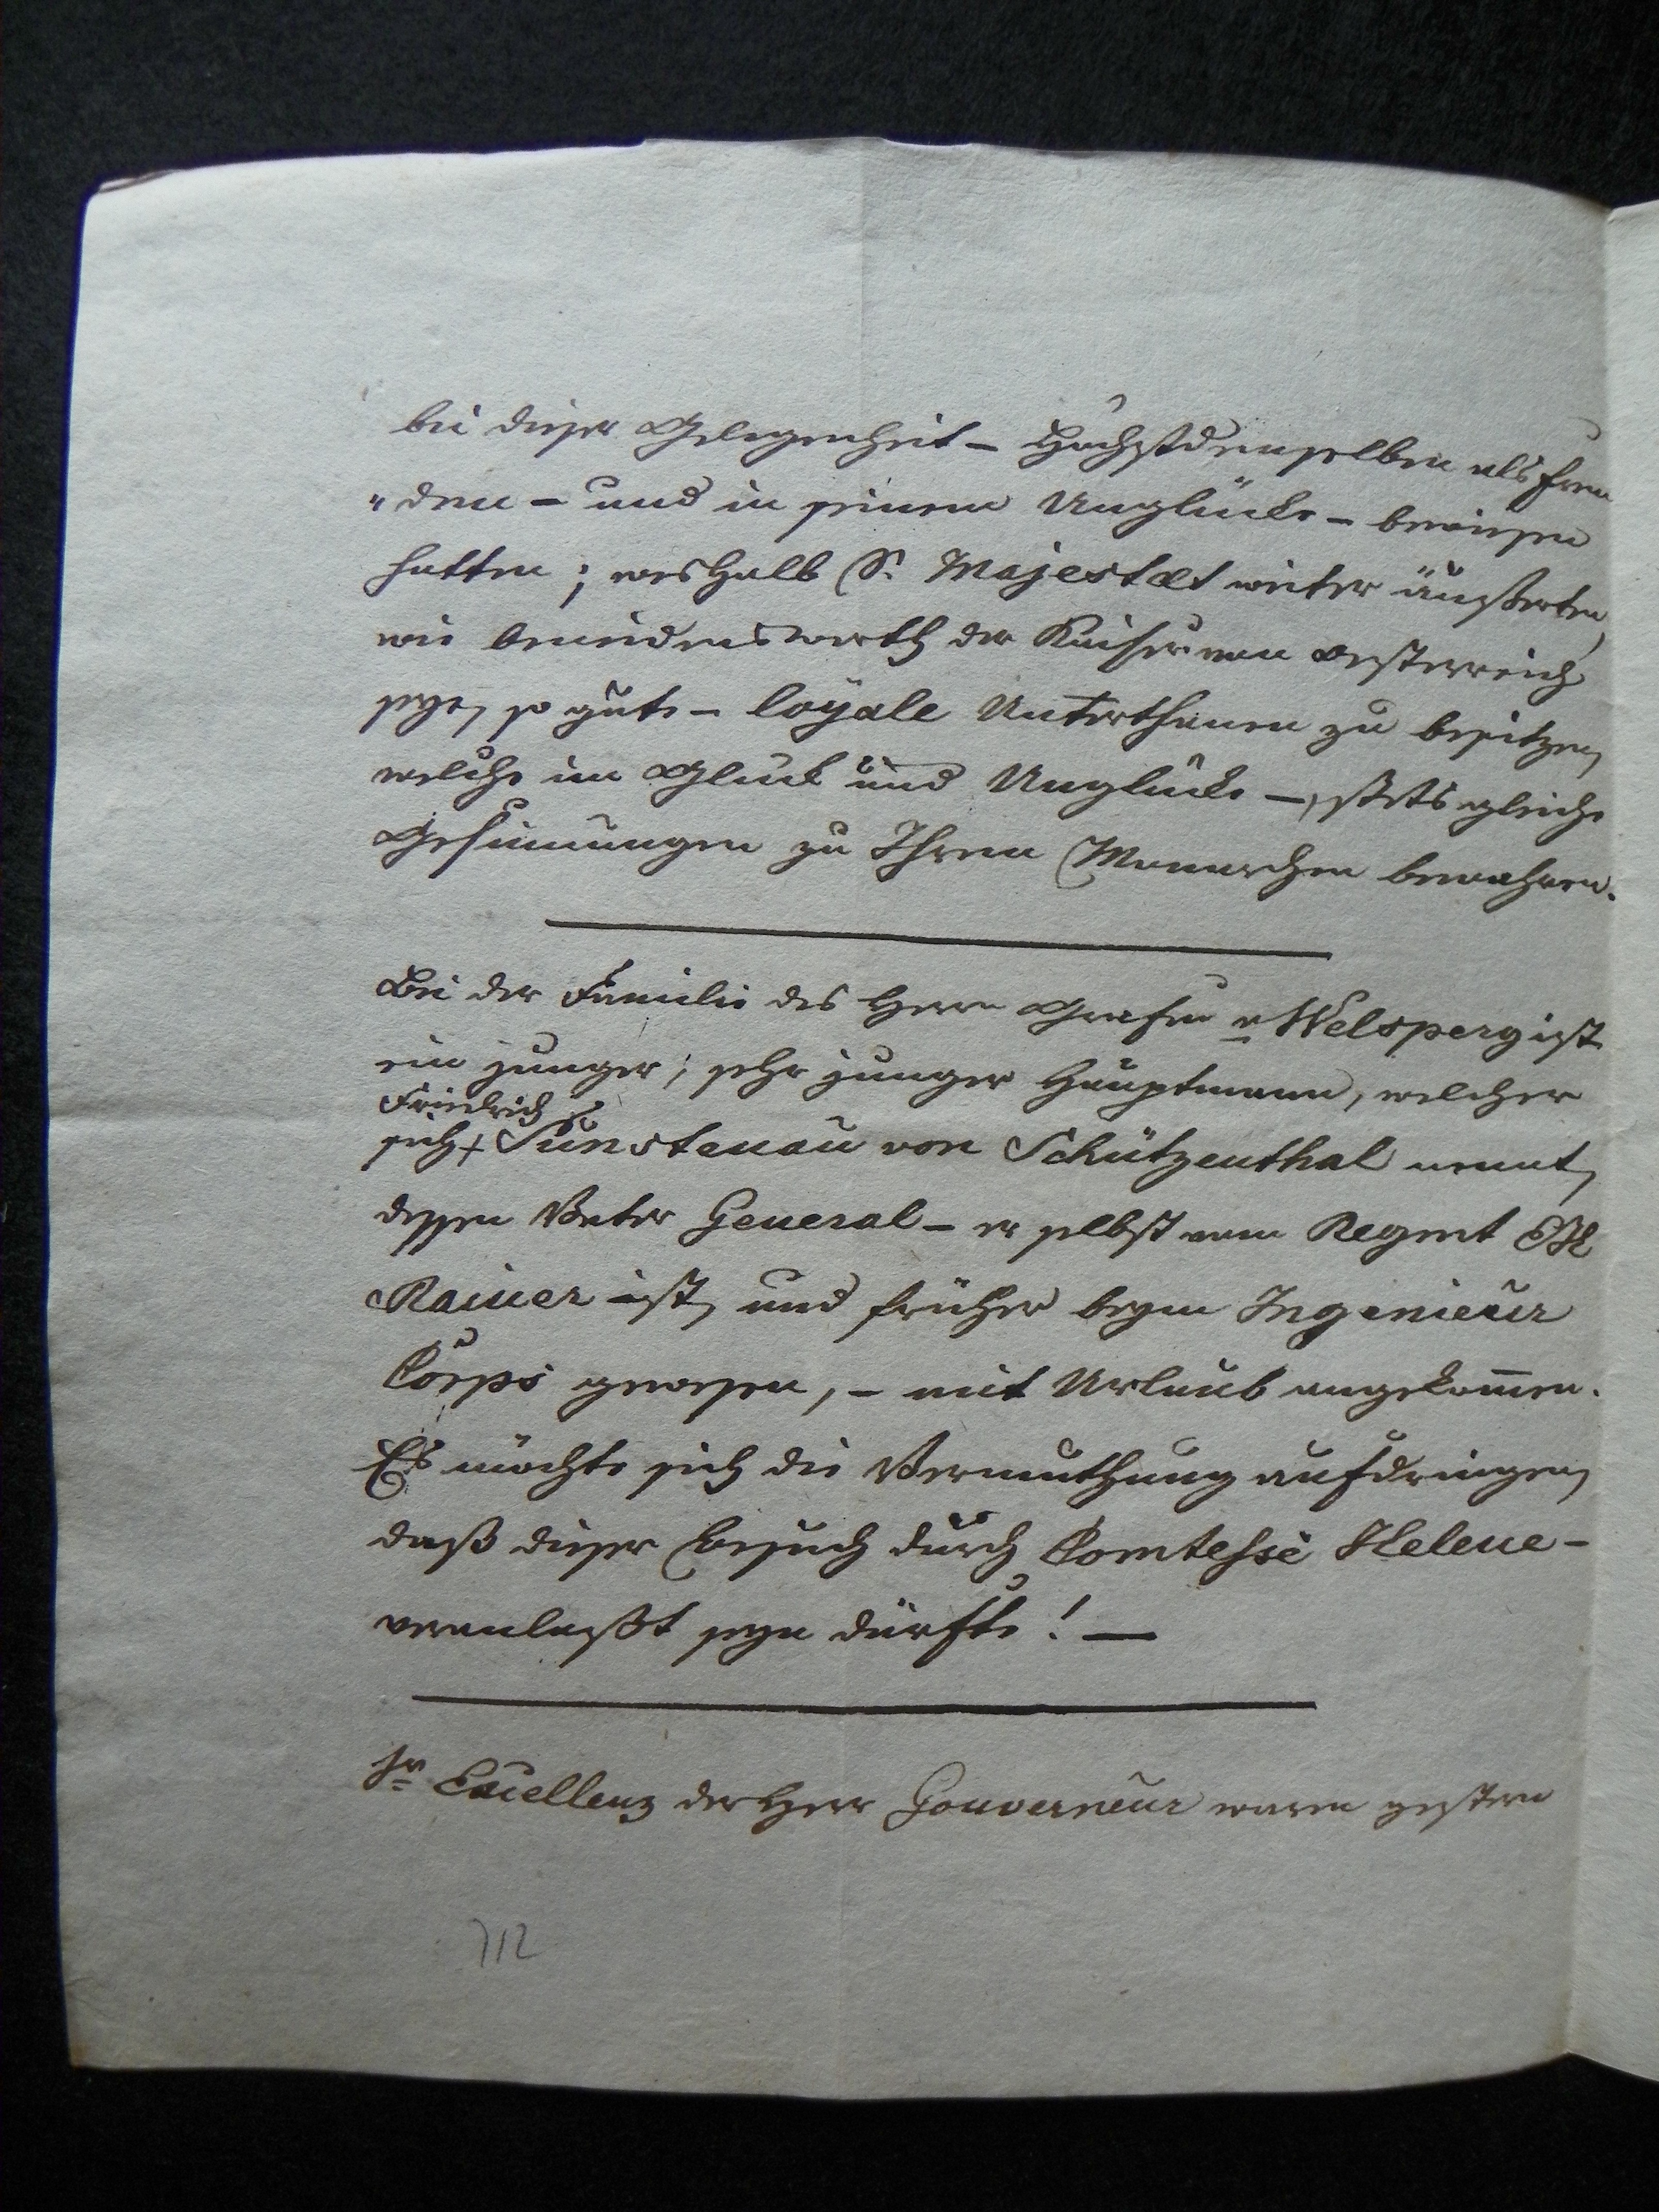 bei dieser Gelegenheit – Höchstdemselben als Frem
"den – und in seinem Unglücke – bewiesen
hatten; weshalb S. Majestæt weiter äußerten,
wie beneidenswerth der Kaiser von Oesterreich
seye, so gute – loÿale Unterthanen zu besitzen,
welche im Glück und Unglücke –, stets gleiche
Gesinnungen zu Ihrem Monarchen bewahren.
Bei der Familie des Herrn Grafen v Welsperg ist
ein junger; sehr junger Hauptmann, welcher
Friedrich
sich + Sunstenau von Schützenthal nennt,
dessen Vater General – er selbst vom Regmt EH
Rainer ist, und früher beym Ingenieur
Corps gewesen, – mit Urlaub angekommen.
Es möchte sich die Vermuthung aufdringen,
daß dieser Besuch durch Comtesse Helene –
veranlaßt seyn dürfte! –
Sr Excellenz der Herr Gouverneur waren gestern
712